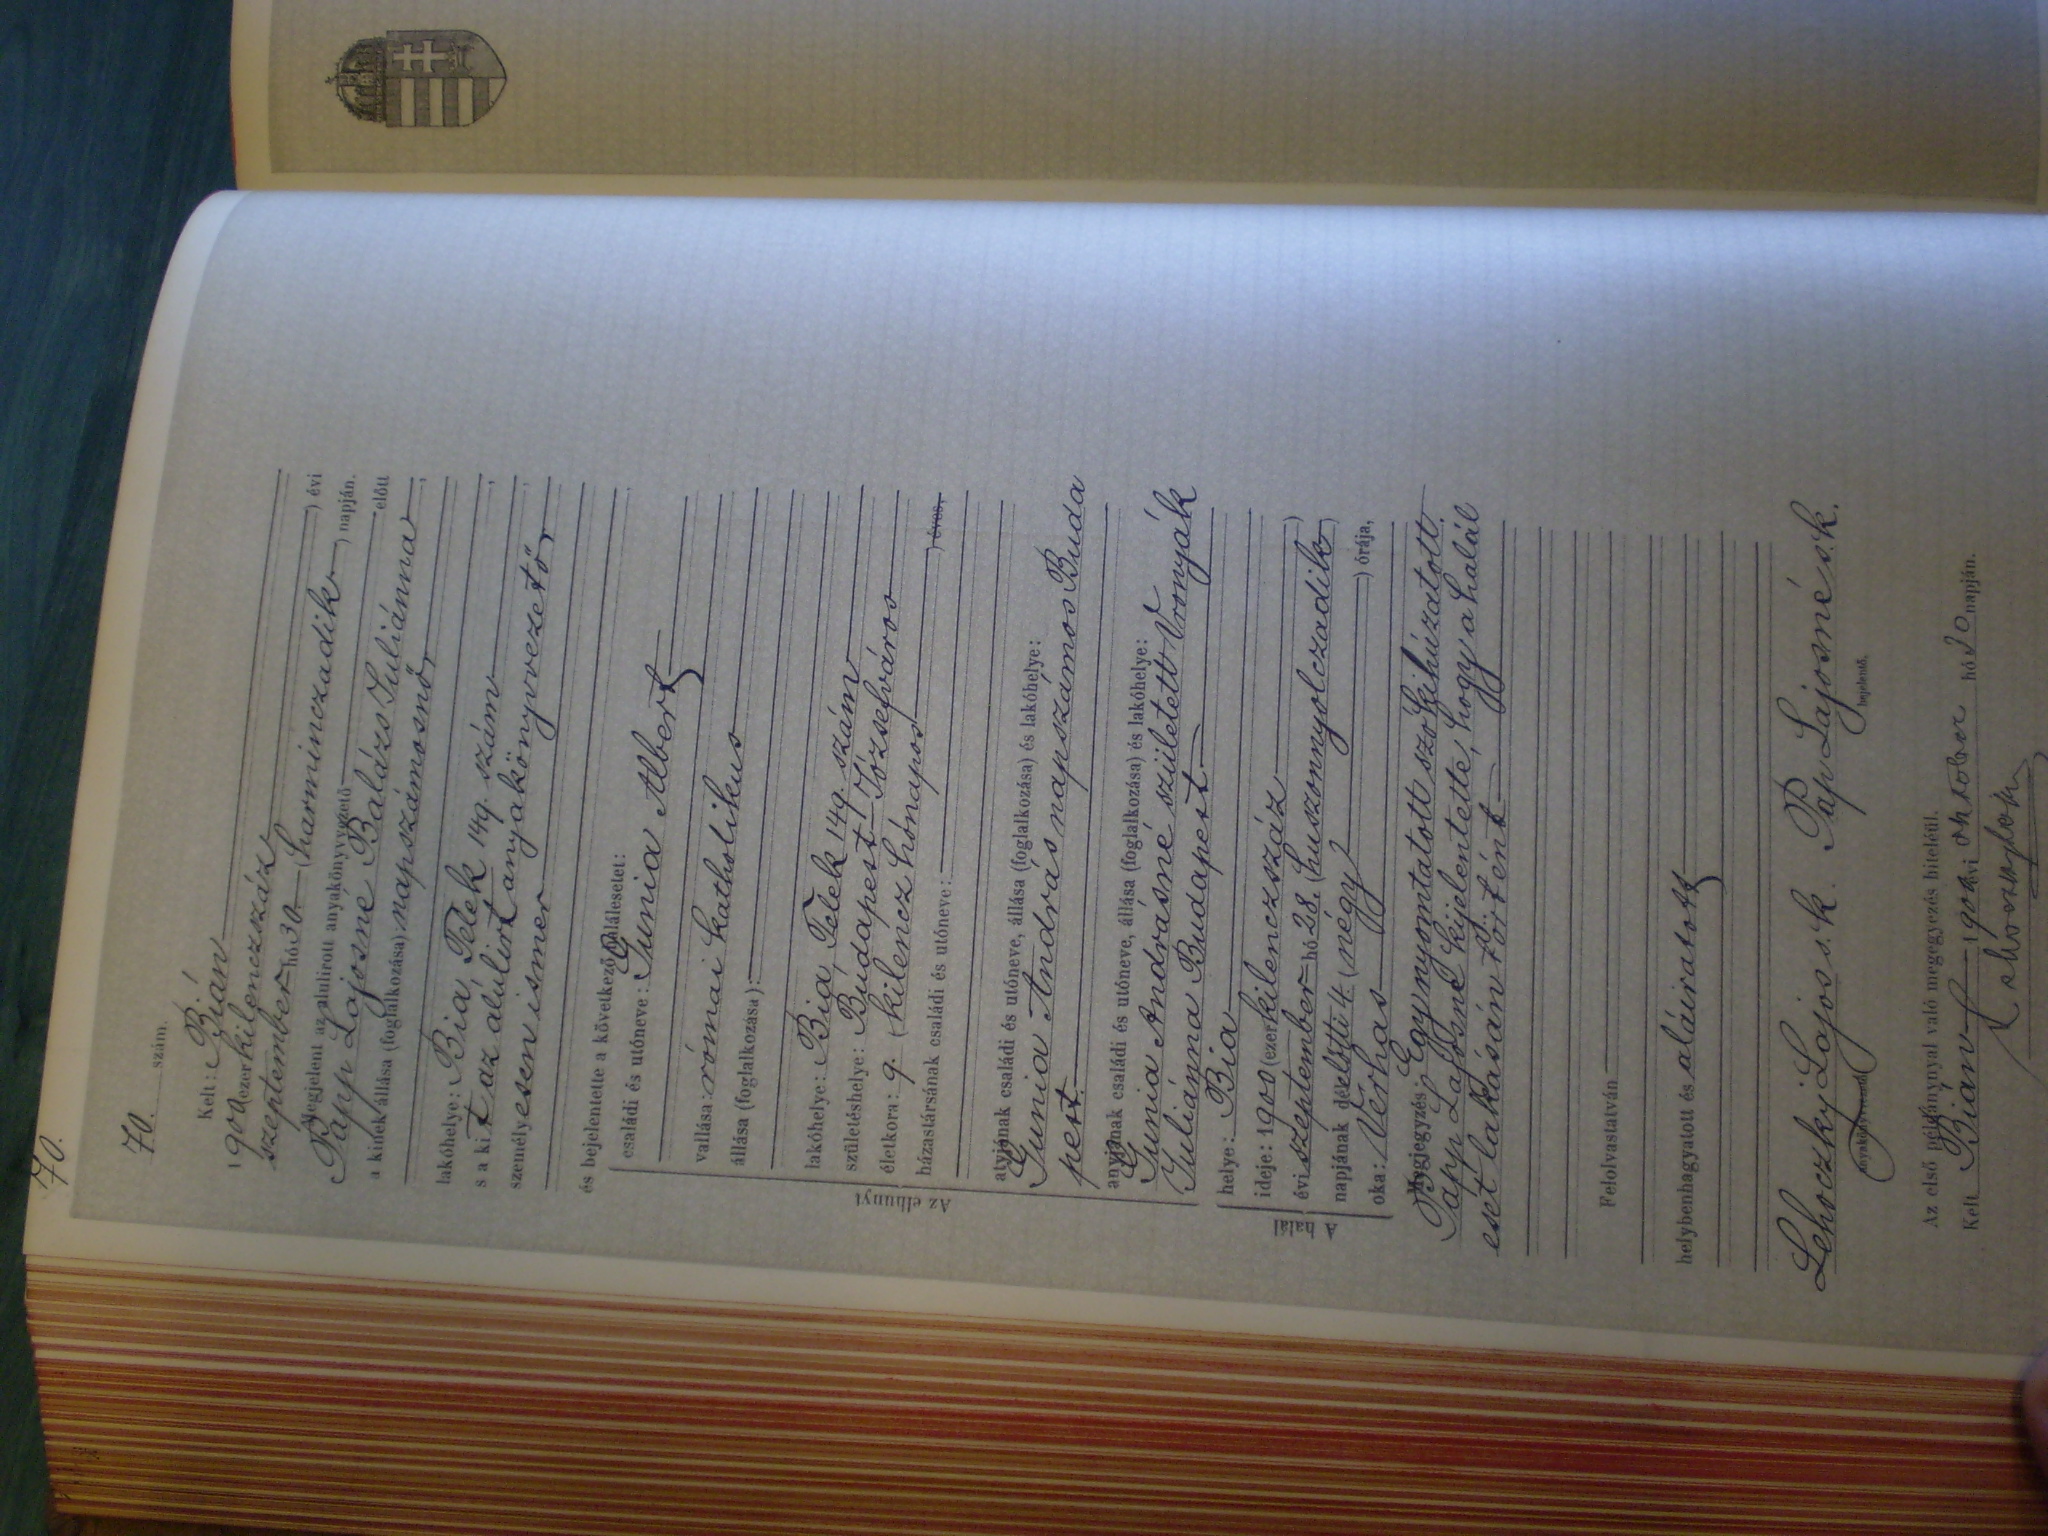 70.
70. szám.
Kelt: Bián
1900 ezerkilenczszáz
szeptember hó 30. (harminczadik) évi
napján.
Megjelent az alulirott anyakönyvvezető előtt
Papp Lajosné Balázs Juliánna,
a kinek állása (foglalkozása) napszámosnő,
lakóhelye: Bia, Telek 149. szám,
s a kit az alúlirt anyakönyvvezető
személyesen ismer
és bejelentette a következő halálesetet:
Az elhunyt
családi és utóneve: Gunia Albert
vallása: római katholikus
állása (foglalkozása):
lakóhelye: Bia, Telek 149. szám
születéshelye: Budapest-Józsefváros
életkora: 9. (kilencz hónapos) éves,
házastársának családi és utóneve:
atyjának családi és utóneve, állása (foglalkozása) és lakóhelye:
Gunia András napszámos Buda
pest.
anyjának családi és utóneve, állása (foglalkozása) és lakóhelye:
Gunia Andrásné született Vronyák
Juliánna Budapest.
A halál
helye: Bia
ideje: 1900 (ezerkilenczszáz)
évi szeptember hó 28. (huszonnyolczadik)
napjának délelőtti 4. (négy) órája,
oka: Vérhas
Megjegyzés Egy nyomtatott szó kihúzatott.
Papp Lajosné kijelentette, hogy a halál
eset lakásán történt.
Felolvastatván
helybenhagyatott és aláiratott
Lehoczky Lajos s. k. Pap Lajosné s. k.
anyakönyvvezető bejelentő.
Az első példánynyal való megegyezés hiteléül.
Kelt Bián 1900 évi október hó napján.